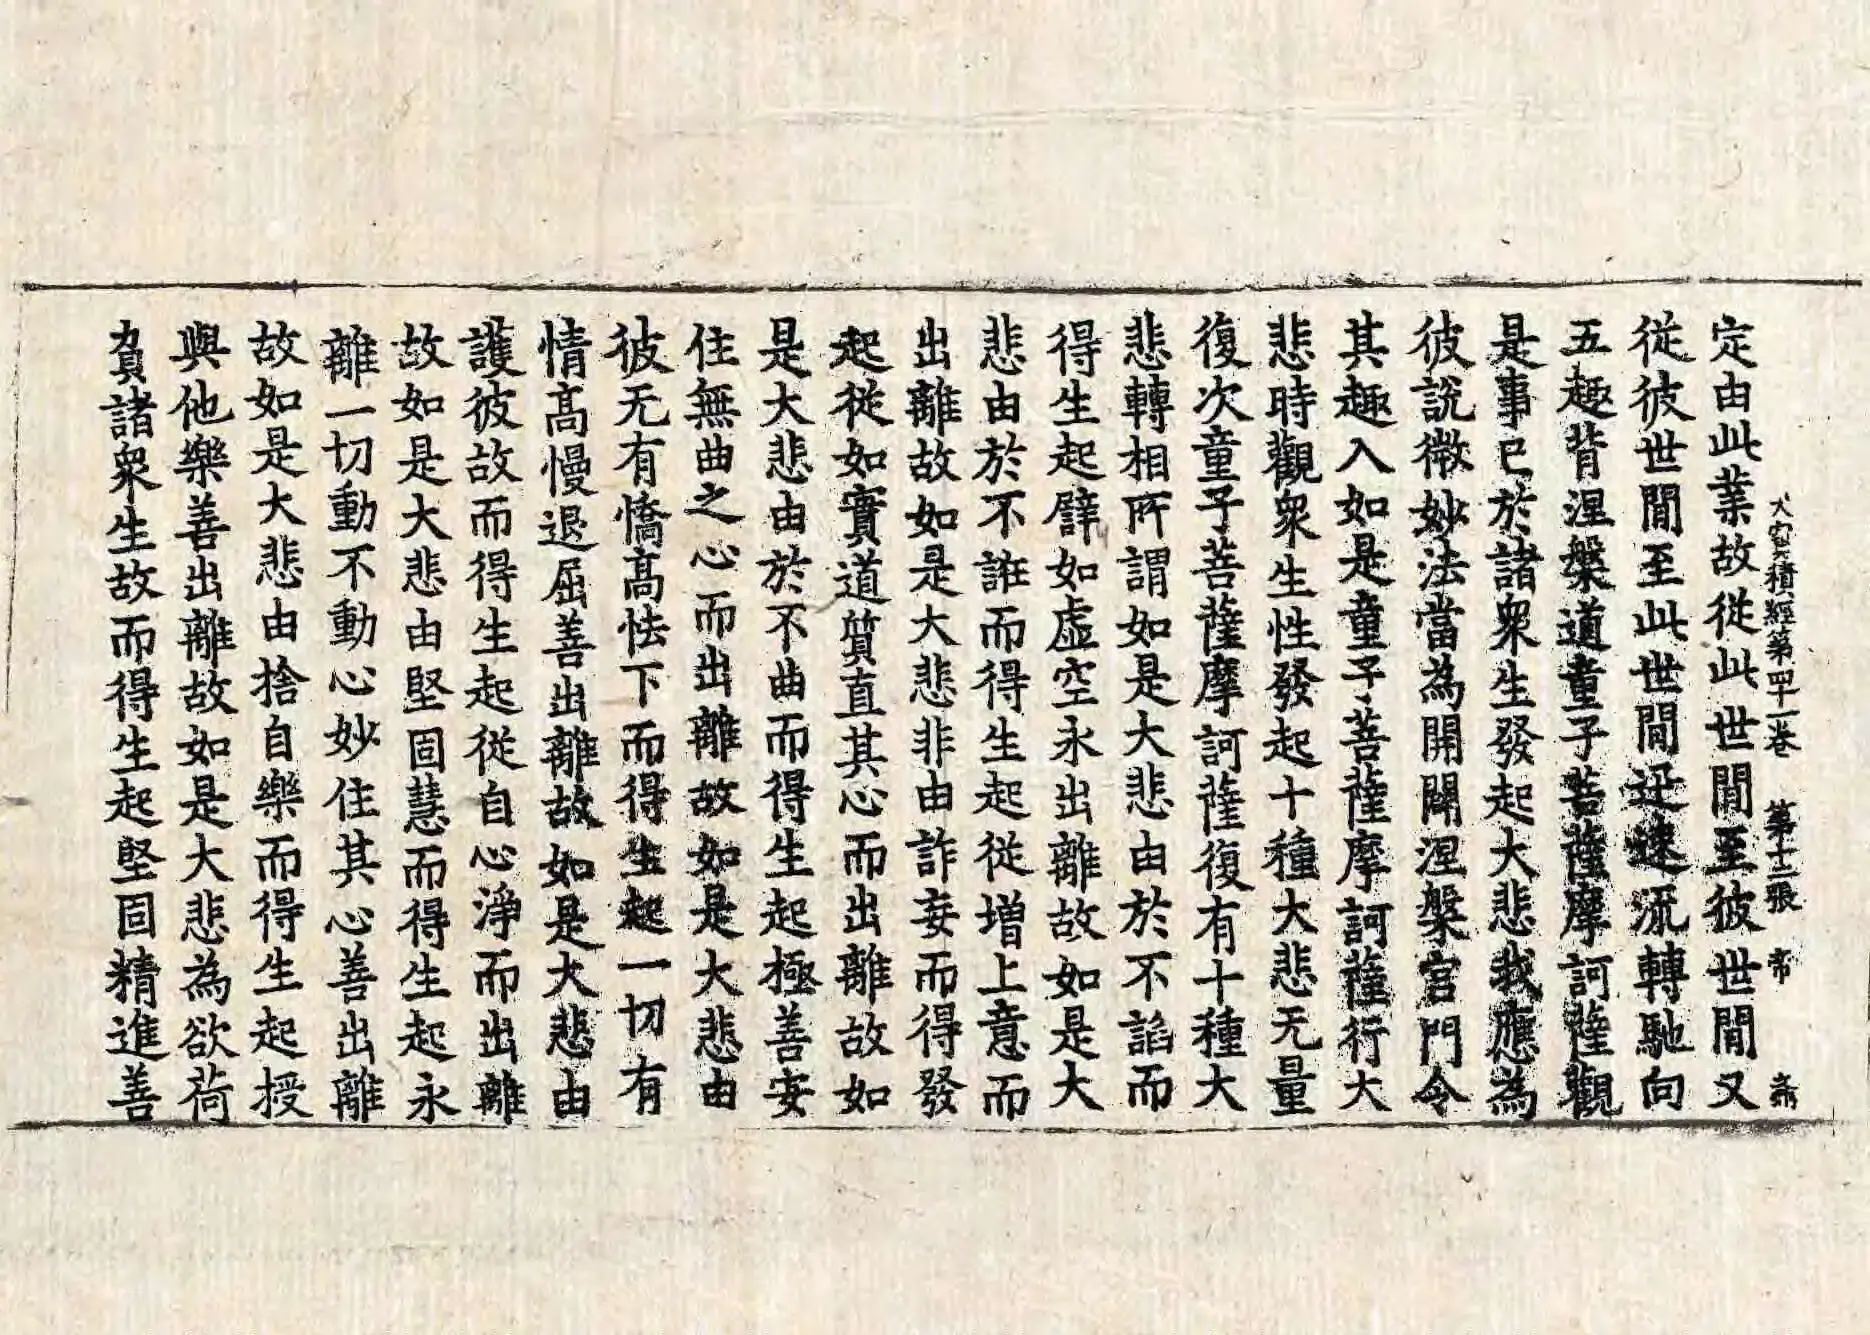 大寶積經第四十一卷 第十三張 帝
定由此業故從此世間至彼世間又
從彼世間至此世間迅速流轉馳向
五趣背涅槃道童子菩薩摩訶薩觀
是事已於諸衆生發起大悲我應為
彼說微妙法當為開闡涅槃宫門令
其趣入如是童子菩薩摩訶薩行大
悲時觀衆生性發起十種大悲无量
復次童子菩薩摩訶薩復有十種大
悲轉相所謂如是大悲由於不諂而
得生起譬如虛空永出離故如是大
悲由於不誑而得生起從增上意而
出離故如是大悲非由詐妄而得發
起從如實道質直其心而出離故如
是大悲由於不曲而得生起極善安
住無曲之心而出離故如是大悲由
彼无有憍高怯下而得生起一切有
情高慢退屈善出離故如是大悲由
護彼故而得生起從自心淨而出離
故如是大悲由堅固慧而得生起永
離一切動不動心妙住其心善出離
故如是大悲由捨自樂而得生起授
與他樂善出離故如是大悲為欲荷
負諸衆生故而得生起堅固精進善